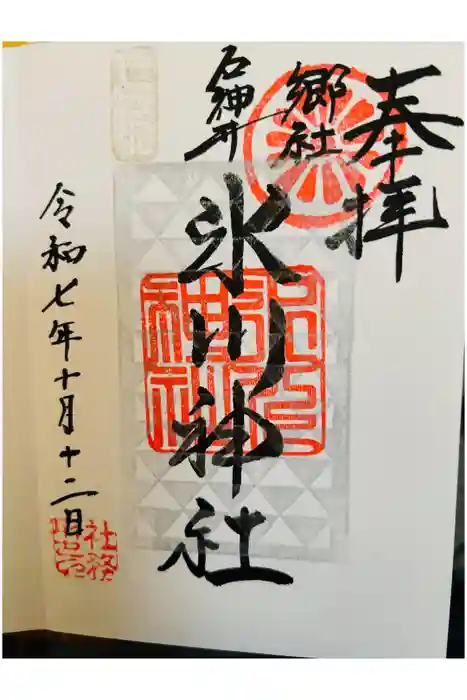 奉拝
郷社
石神井
氷川神社
令和七年十月十二日
社務